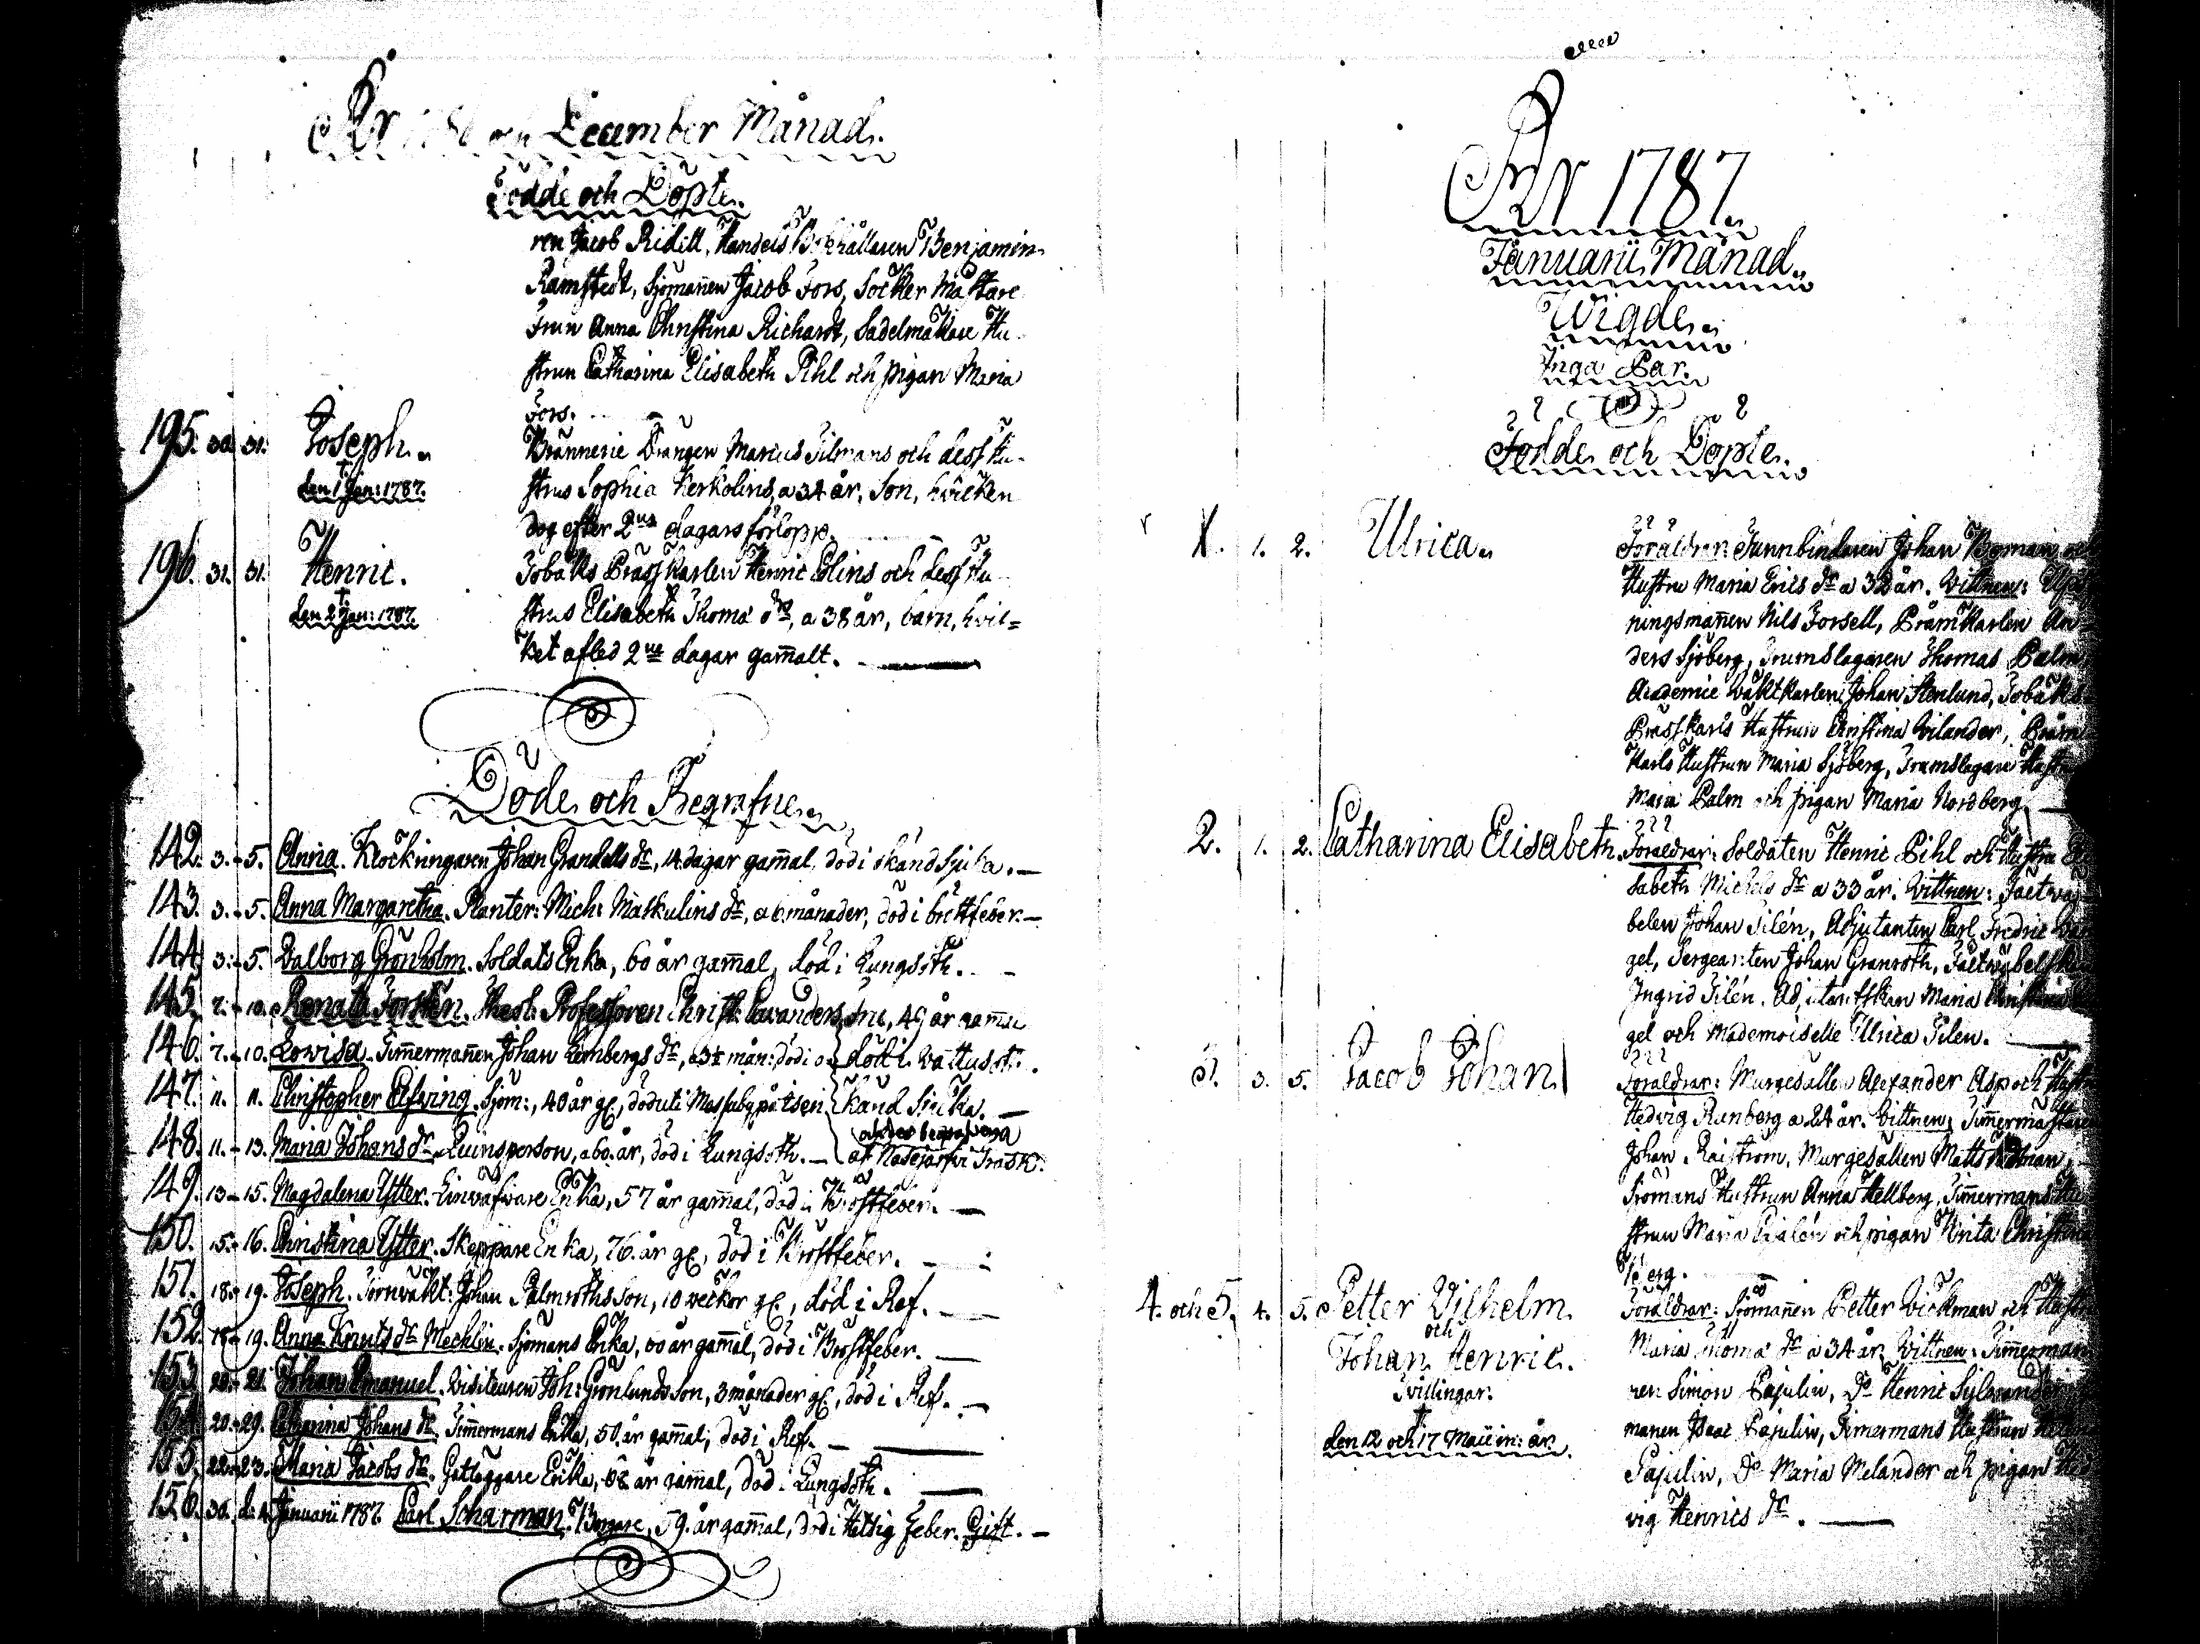 År 1786 och December Månad.
Födde och Döpte.
ren Jacob Ridell, Handels Bokhållaren Benjamin
Ramstedt, Sjömañen Jacob Fors, Socker Mästare
Frun Anna Christina Richardt, Sadelmakare Hu-
strun Catharina Elisabeth Pihl och pigan Maria
Fors.
195. 30. 31. Joseph. Brännerie Drängen Marcus Tilmans och dess Hu-
† den 1 Jan: 1787. strus Sophia Kerkolins, a 34 år, Son, hvilken
dog efter 2ne dagars förlopp.
196. 31. 31. Henric. Tobaks Prässkarlen Henric Elins och dess Hu-
† den 2 Jan: 1787. strus Elisabeth Thomæ dr, a 38 år, barn, hvil=
ket afled 2ne dagar gam̄alt.
Döde och Begrafne.
142. 3. - 5. Anna. Klockringaren Johan Grandells dr, 14 dagar gam̄al, död i okänd Sjuka.
143. 3. - 5. Anna Margaretha. Planter: Mich: Maskulins dr, a 6 månader, död i bröstfeber.
144. 3. - 5. Valborg Grönholm. Soldats Enka, 60 år gam̄al, död i Lungsoth.
145. 7. - 10. Renata Forsteen. Theol: Professoren Christ: Cavanders fru, 49 år gam̄al
146. 7. - 10. Lowisa. Tim̄ermañen Johan Lembergs dr, a 3½ mån: död i o- död i Vattusot.
147. 11. 11. Christopher Elfving. Sjöm:, 40 år gl, död uti Massaby på isen känd Siuka.
148. 11. - 13. Maria Johans dr. Quinsperson, a 60 år, död i Lungsoth.
149. 13 - 15. Magdalena Ytter. Linväfvare Enka, 57 år gam̄al, död i Bröstfeber.
150. 15. - 16. Christina Ytter. Skeppare Enka, 76 år gl, död i Bröstfeber.
151. 18. - 19. Joseph. Tornväkt: Johan Palmroths Son, 10 veckor gl, död i Ref.
152. 18 - 19. Anna Knuts dr Mechlin. Sjömans Enka, 60 år gam̄al, död i Bröstfeber.
153. 20. - 21. Johan Emanuel. Visiteuren Joh: Grönlunds Son, 3 månader gl, död i Ref.
154. 20. - 29. Catharina Johans dr. Tim̄ermans Enka, 50 år gam̄al, död i Ref.
155. 22. - 23. Maria Jacobs dr. Gatläggare Enka, år gam̄al, död i Lungsoth.
156. 30. d: 4 Januarii 1787. Carl Scharman. Borgare, 59 år gam̄al, död i Hettsig Feber. Gift.
År 1787.
Januarii Månad.
Wigde.
Inga Par.
Födde och Döpte.
1. 1. 2. Ulrica. Föräldrar: Tunnbindaren Johan Boman och
Hustru Maria Erics dr a 32 år. Vittnen:
ningsmañen Nils Forsell, Pråmkarlen An-
ders Sjöberg, Trumslagaren Thomas Palm,
Academie Vaktkarlen Johan Stenlund, Tobaks
Prässkarls Hustrun Christina Vilander, Pråm
Karls Hustrun Maria Sjöberg, Trumslagare Hustru
Maria Palm och pigan Maria Nordberg.
2. 1. 2. Catharina Elisabeth. Föräldrar: Soldaten Henric Pihl och Hustru Eli
sabeth Michels dr a 33 år. Vittnen: Fältvä-
belen Johan Tilén, Adjutanten Carl Fredric
gel, Sergeanten Johan Granroth, Fältväbelskan
Ingrid Tilén, Adjutantskan Maria Christina
gel och Mademoiselle Ulrica Tilen.
3. 3. 5. Jacob Johan. Föräldrar: Murgesällen Alexander Asp och Hustru
Hedvig Runberg a 24 år. Vittnen: Tim̄ermästaren
Johan Raistrom, Murgesällen Matts
Sjömans Hustrun Anna Hellberg, Tim̄ermans Hu
strun Maria och pigan Brita Christina
berg.
4. och 5. 4. 5. Petter Vilhelm Föräldrar: Sjömañen Petter Vickman och Hustru
och Maria Thomæ dr a 34 år. Vittnen: Tim̄erman
Johan Henric. ren Simon Pajulin, Do Henric
Tvillingar. manen Isaac Pajulin, Tim̄ermans Hustrun
† den 12 och 17 Maii in: år. Pajulin, Do Maria Melander och pigan Hed
vig Henrics dr.